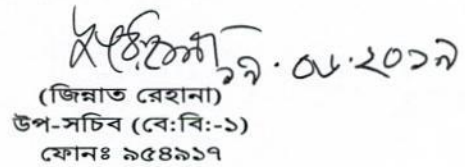 ১৯.০৬.২০১৯
(জিন্নাত রেহানা)
উপ-সচিব (বে:বি:-১)
ফোনঃ ৯৫৪৯১৭